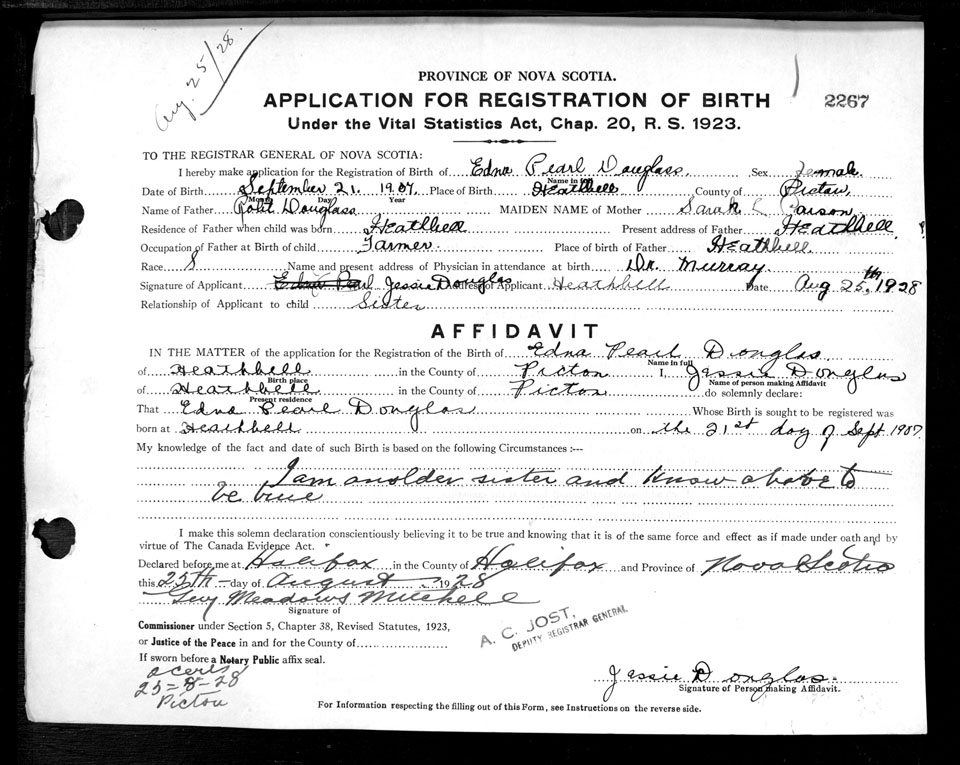 Aug. 25/28.
PROVINCE OF NOVA SCOTIA.
APPLICATION FOR REGISTRATION OF BIRTH
2267
Under the Vital Statistics Act, Chap. 20, R. S. 1923.
TO THE REGISTRAR GENERAL OF NOVA SCOTIA:
I hereby make application for the Registration of Birth of Edna Pearl Douglass Sex Female
Name in full
Date of Birth September 21. 1907. Place of Birth Heathbell County of Pictou
Month Day Year
Name of Father Robt Douglass MAIDEN NAME of Mother Sarah L Carson
Residence of Father when child was born Heathbell Present address of Father Heathbell
Occupation of Father at Birth of child Farmer. Place of birth of Father Heathbell
Race S Name and present address of Physician in attendance at birth Dr. Murray
Signature of Applicant Edna Pearl Jessie Douglas Address of Applicant Heathbell Date Aug 25th, 1928
Relationship of Applicant to child Sister
AFFIDAVIT
IN THE MATTER of the application for the Registration of the Birth of Edna Pearl Douglas
Name in full
of Heathbell in the County of Picton I, Jessie Douglas
Birth place Name of person making Affidavit
of Heathbell in the County of Picton do solemnly declare:
Present residence
That Edna Pearl Douglas Whose Birth is sought to be registered was
born at Heathbell on the 21st day of Sept 1907.
My knowledge of the fact and date of such Birth is based on the following Circumstances :---
I am an older sister and know above to
be true
I make this solemn declaration conscientiously believing it to be true and knowing that it is of the same force and effect as if made under oath and by
virtue of The Canada Evidence Act.
Declared before me at Halifax in the County of Halifax and Province of Nova Scotia
this 25th day of August 1928
Guy Meadows Mitchell
Signature of
Commissioner under Section 5, Chapter 38, Revised Statutes, 1923,
or Justice of the Peace in and for the County of
A. C. JOST,
DEPUTY REGISTRAR GENERAL
If sworn before a Notary Public affix seal.
25-8-28
Picton
Jessie Douglas.
Signature of Person making Affidavit.
For Information respecting the filling out of this Form, see Instructions on the reverse side.